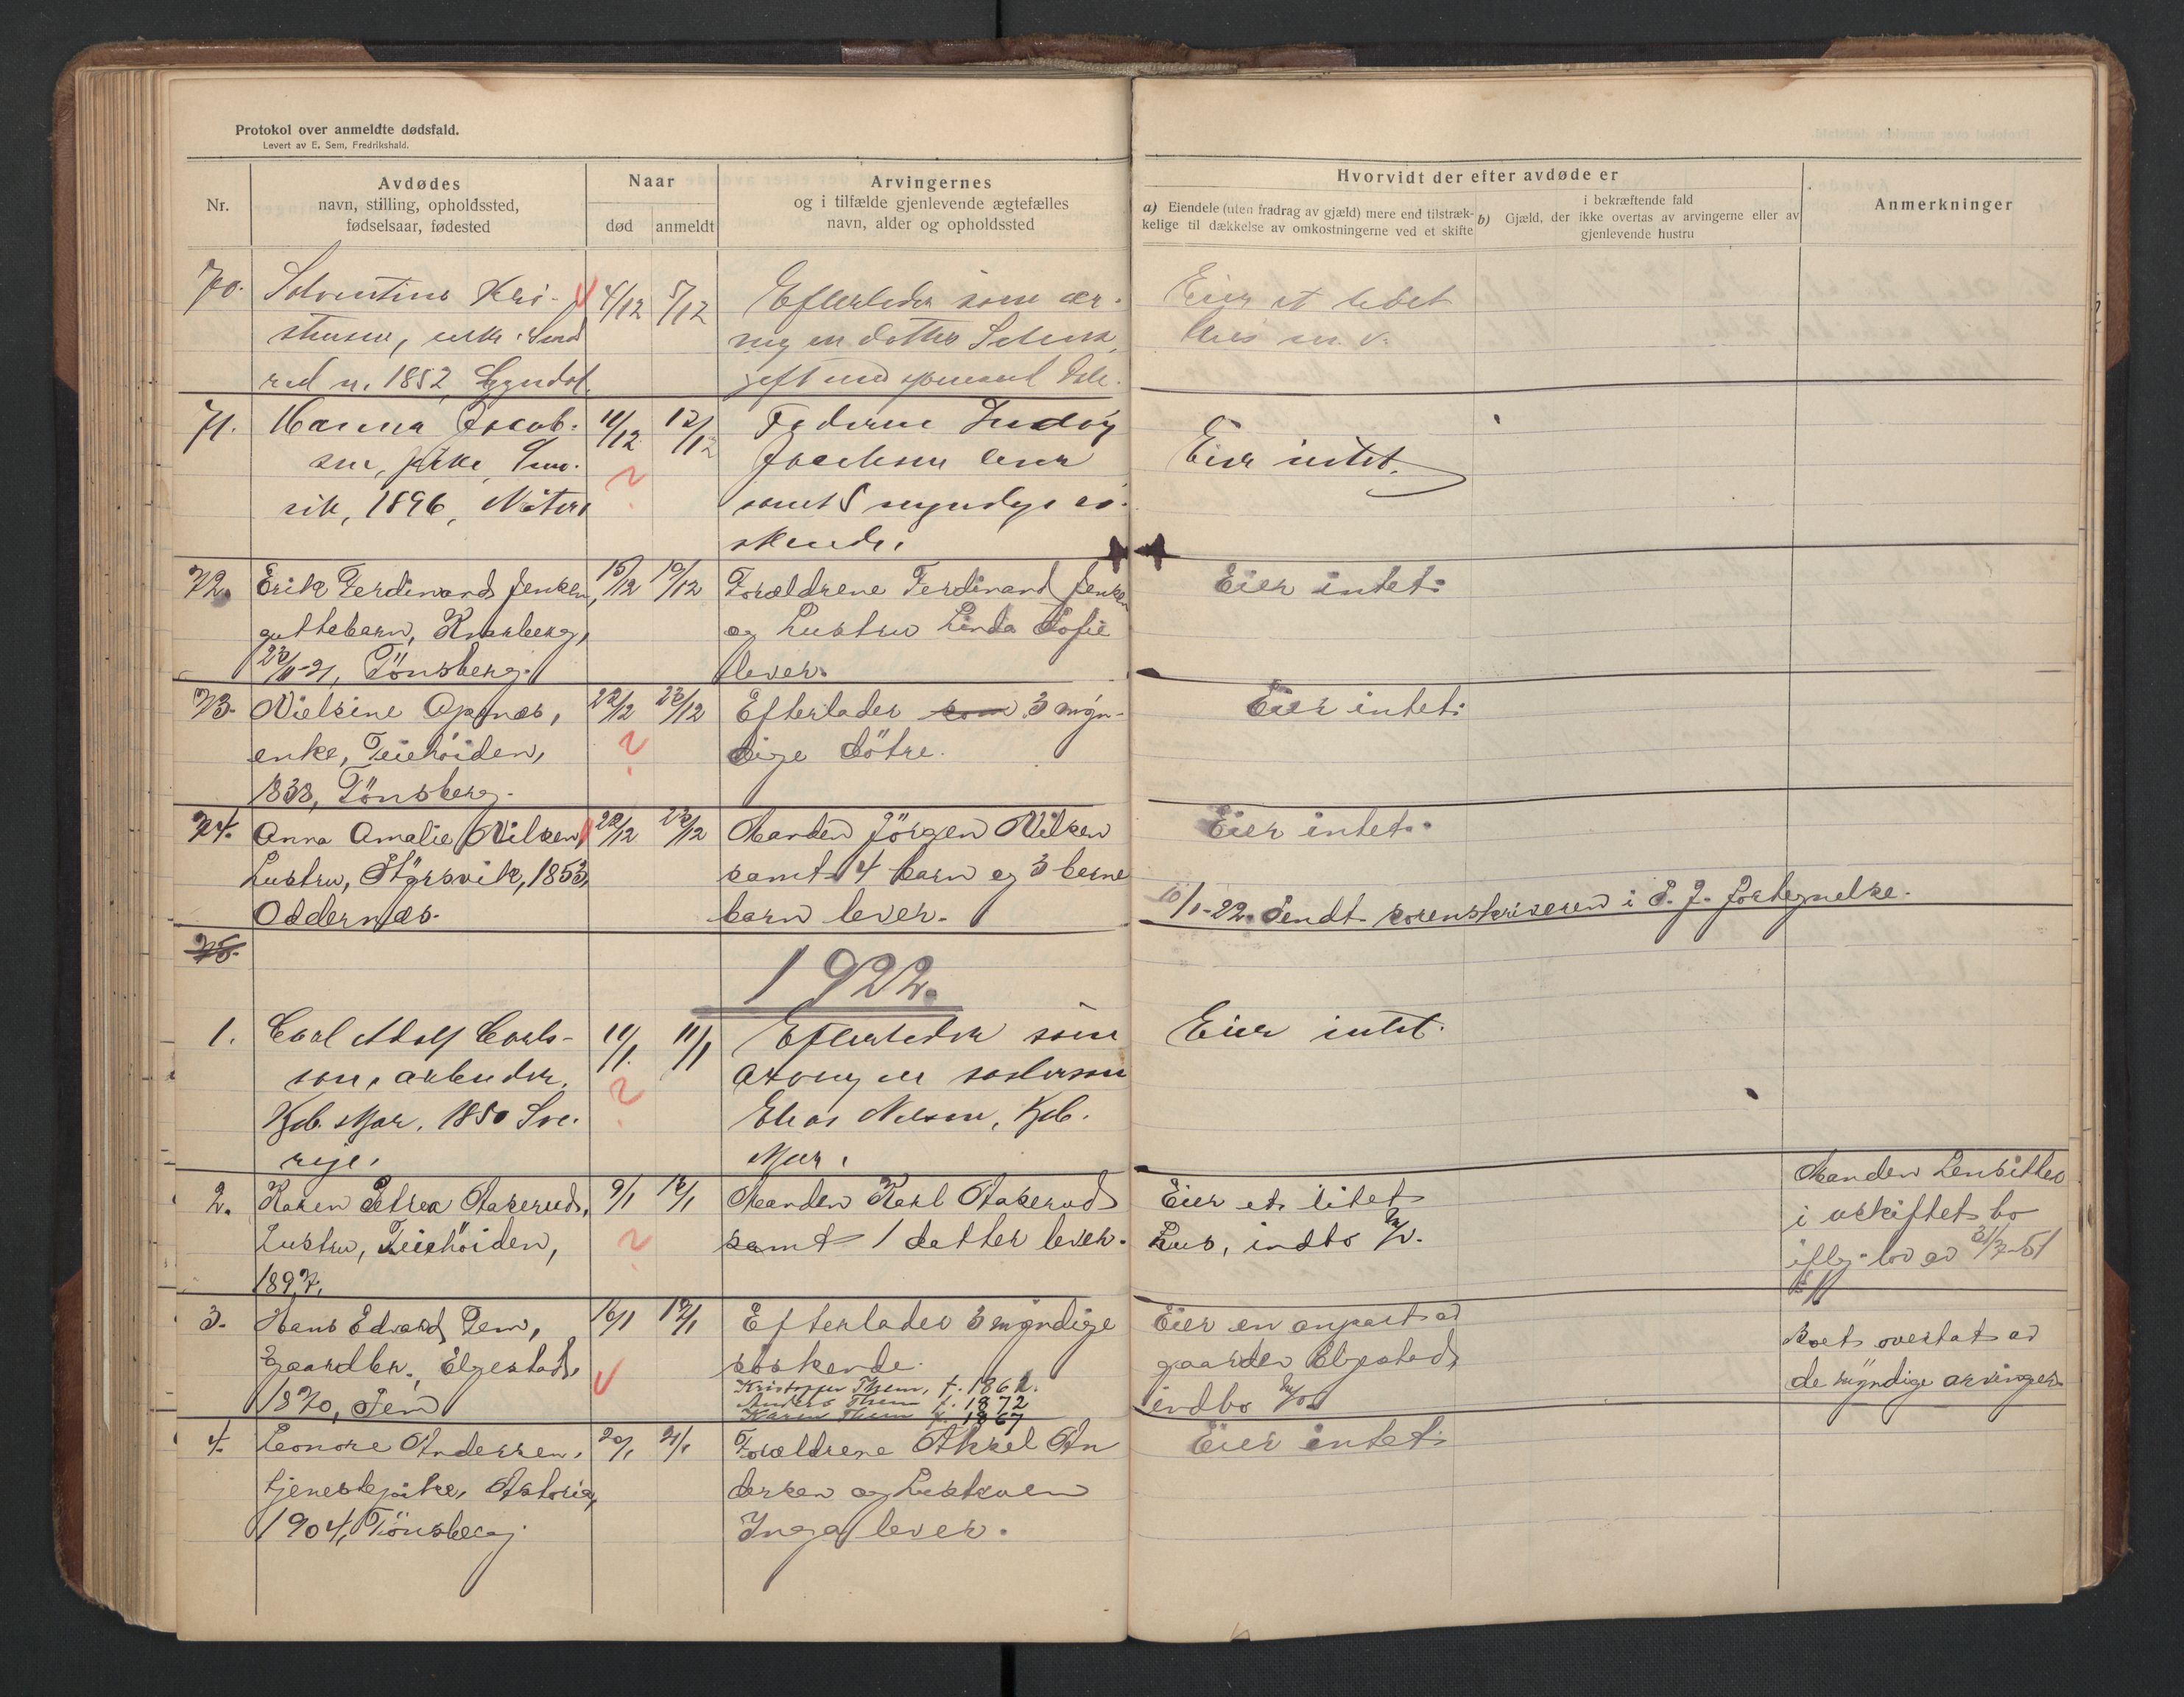 Protokol over anmeldte dødsfald.
Levert av E. Sem, Fredrikshald.
Nr.
Avdødes
navn, stilling, opholdssted,
fødselsaar, fødested
Naar
død
anmeldt
Arvingernes
og i tilfælde gjenlevende ægtefælles
navn, alder og opholdssted
Hvorvidt der efter avdøde er
a) Eiendele (uten fradrag av gjæld) mere end tilstræk-
kelige til dækkelse av omkostningerne ved et skifte
i bekræftende fald
b) Gjæld, der ikke overtas av arvingerne eller av
gjenlevende hustru
Anmerkninger
70.
Kri-
stensen, enke
n. 1852
4/12 5/12
Efterlader som ar-
ving en datter
gift med
Eier et lidet
hus m. v.
71.
Hanna Jacob-
sen, pike,
1896, Nøtterø
11/12 12/12
Faderen
Jacobsen lever
samt 5 myndige sø-
skende.
Eier intet.
72.
Erik Ferdinand Jensen,
guttebarn, Knarberg,
23/11-21, Tönsberg.
15/12 19/12
Forældrene Ferdinand Jensen
og hustru Linda Sofie
lever.
Eier intet.
73.
Nielsine Apenæs,
enke, Teiehöiden,
1838, Tönsberg.
22/12 23/12
Efterlader som 3 myn-
dige dötre.
Eier intet.
74.
Anna Amalie Nilsen,
hustru, 1853,
Oddernæs.
22/12 23/12
Manden Jörgen Nilsen
samt 4 barn og 3 barne
barn lever.
Eier intet.
10/1-22. Sendt sorenskriveren i S. J. fortegnelse.
75.
1922.
1.
Carl Adolf Carls-
son, arbeider,
1850 Sve-
rige.
11/1. 11/1
Efterlader som
arving en søstersøn
Elias Nelson,
Eier intet.
2.
Karen Petrea Aakerud,
hustru, Teiehöiden,
1897.
9/1 12/1
Manden Karl Aakerud
samt 1 datter lever.
Eier et litet
hus, indbo m/v.
Manden hensitter
i uskiftet bo
ifly. lov av 31/7-51
3.
Hans Edvard Tem,
gaardbr., Elgestad,
1870, Sem
16/1 19/1
Efterlader 3 myndige
søskende.
Kristoffer Them, f. 1862.
Anders Them f. 1872
Karen Them f. 1867
Eier en anpart av
gaarden Elgestad,
indbo m/v.
Boet overtat av
de myndige arvinger.
4.
Leonore Andersen,
tjenestepike, Astoria,
1904, Tönsberg.
20/1 21/1
Forældrene Aksel An
dersen og hustruen
Inga lever.
Eier intet.